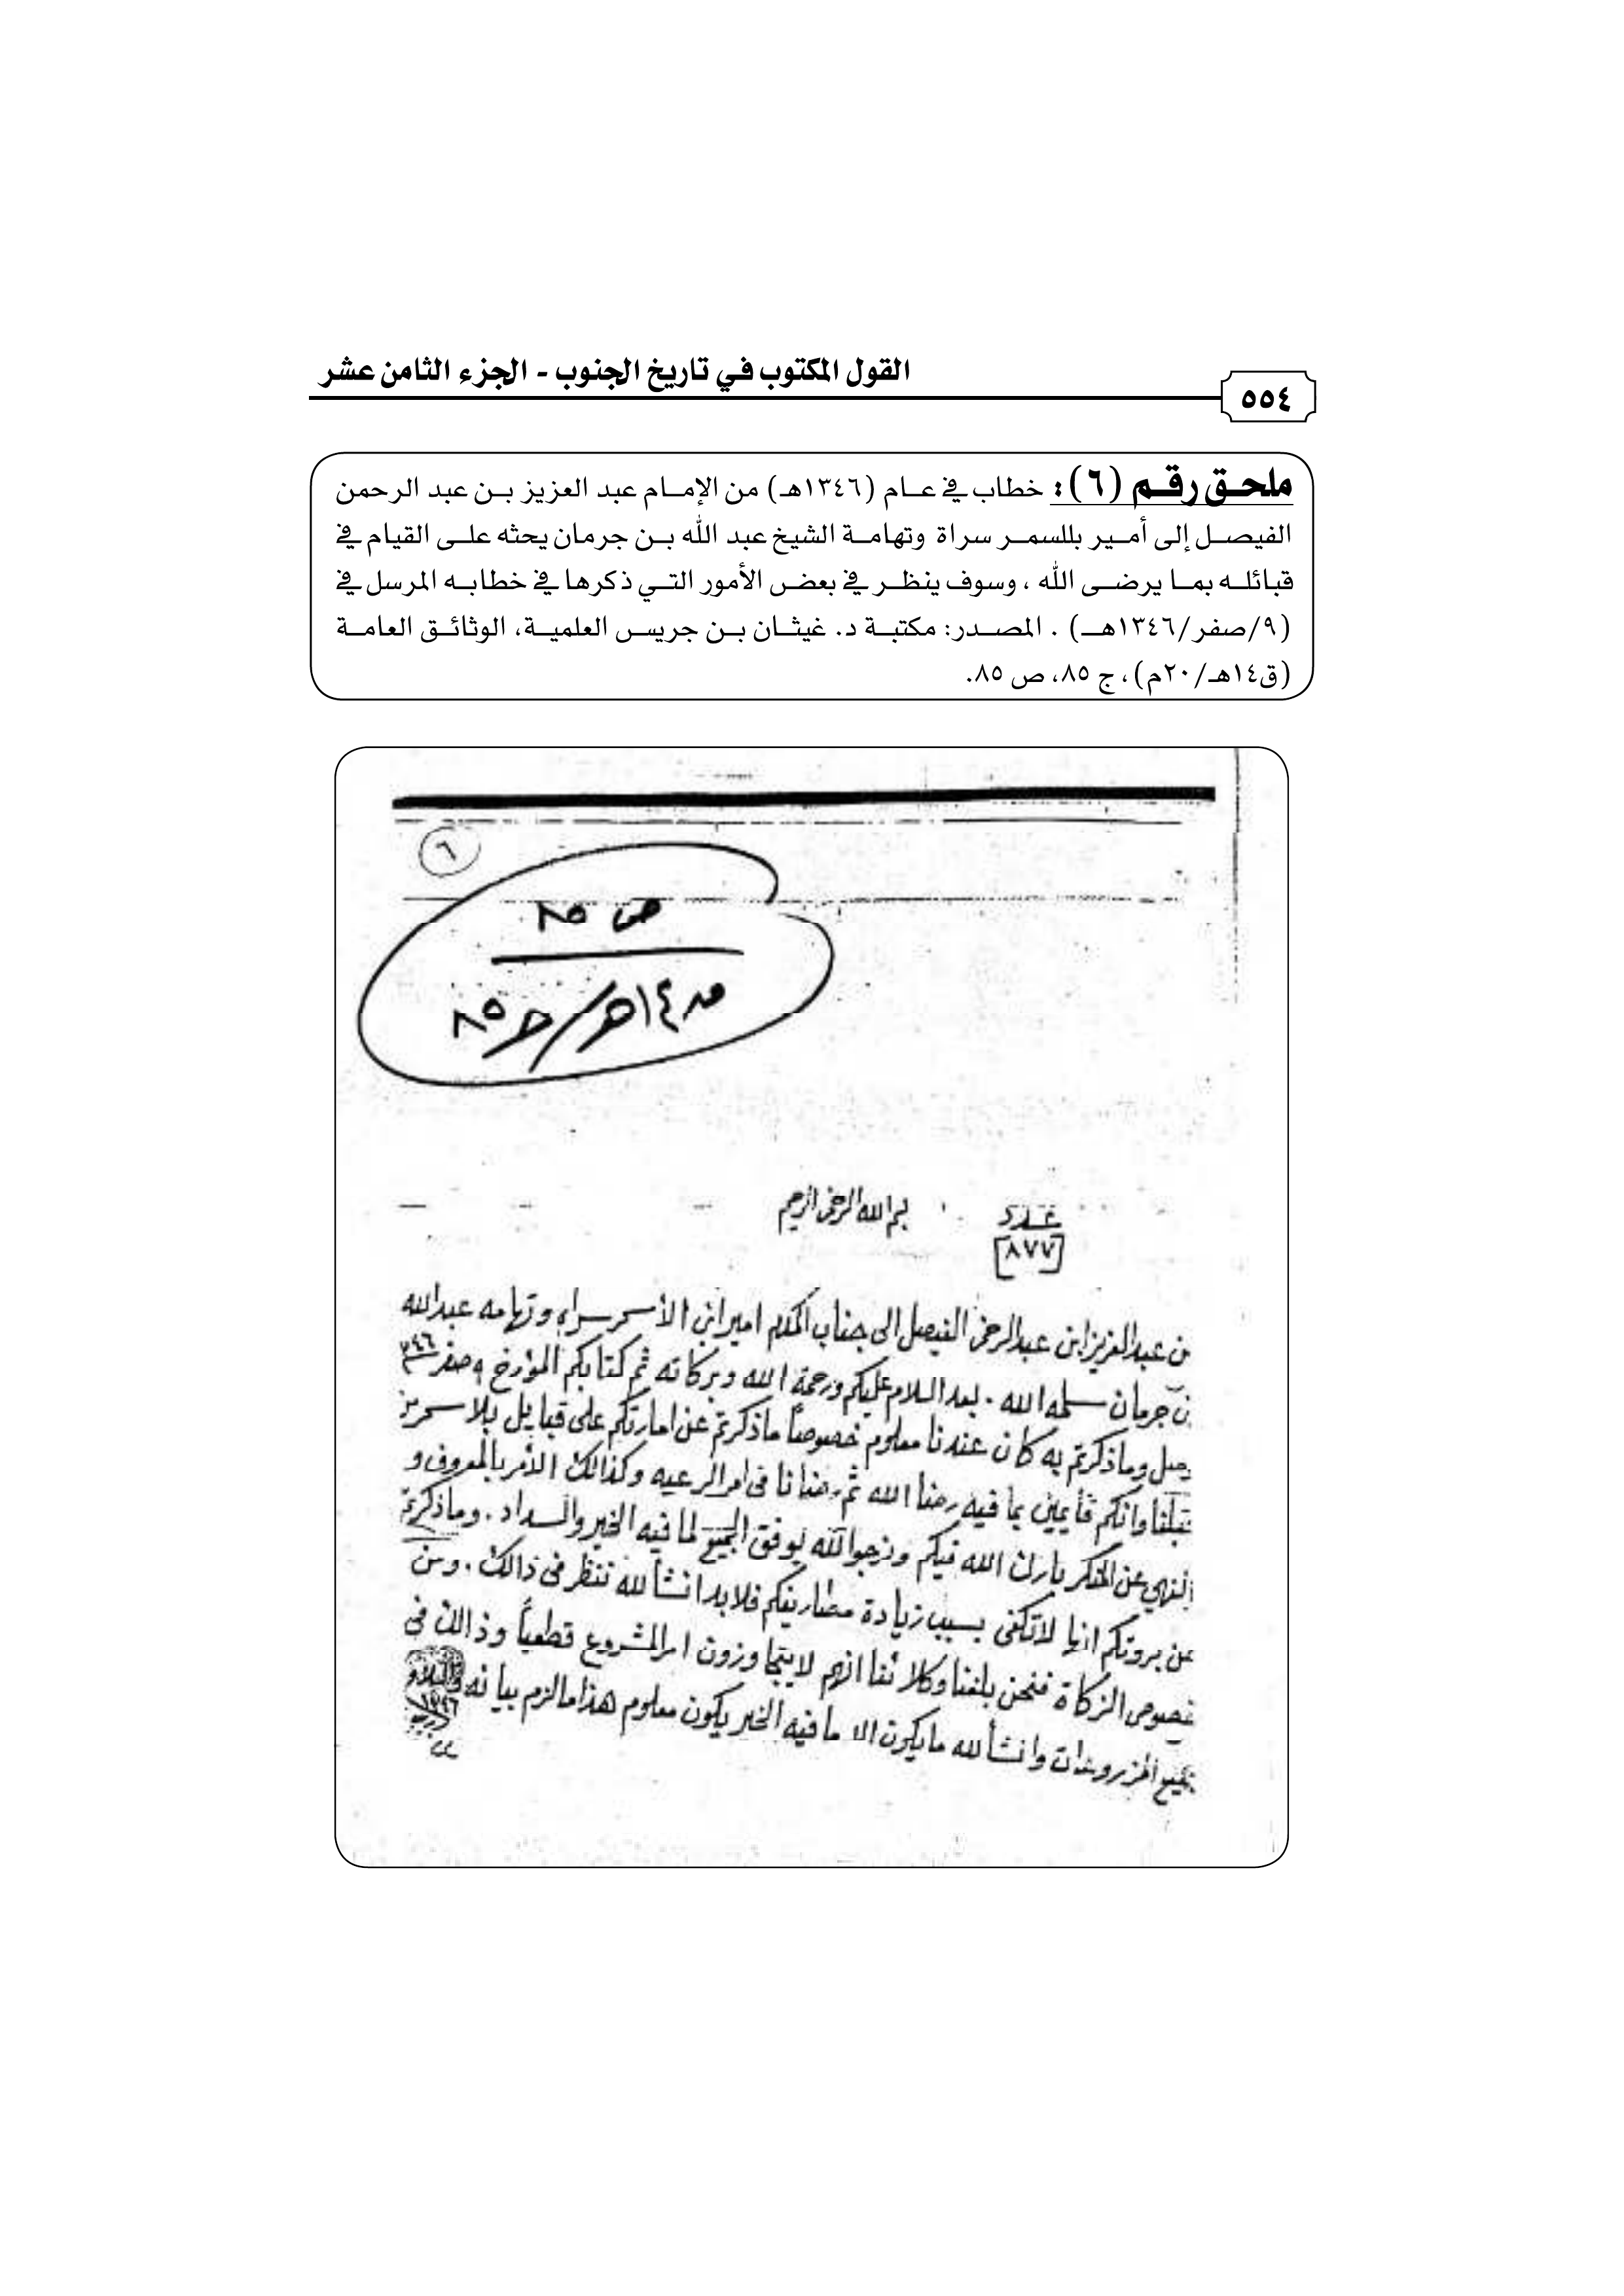 القول المكتوب في تاريخ الجنوب - الجزء الثامن عشر
٥٥٤
ملحق رقم (٦): خطاب في عام (١٣٤٦هـ) من الإمام عبد العزيز بن عبد الرحمن
الفيصل إلى أمير بللسمر سراة وتهامة الشيخ عبد الله بن جرمان يحثه على القيام في
قبائله بما يرضى الله ، وسوف ينظر في بعض الأمور التي ذكرها في خطابه المرسل في
(٩/صفر/١٣٤٦هـ) . المصدر: مكتبة د. غيثان بن جريس العلمية، الوثائق العامة
(ق١٤هـ/٢٠م)، ج ٨٥، ص ٨٥.
٦
ص ٨٥
ق١٤هـ/ج٨٥
بسم الله الرحمن الرحيم
عدد
[٨٧٧]
من عبدالعزيز ابن عبدالرحمن الفيصل الى جناب المكرم امير ابن الأسمر سراه وتهامه عبدالله
بن جرمان سلمه الله . بعد السلام عليكم ورحمة الله وبركاته ثم كتابكم المؤرخ ٩ صفر ٣٤٦
وصل وماذكرتم به كان عندنا معلوم خصوصاً ماذكرتم عن امارتكم على قبايل بلاسمر من
قبلنا وانكم قأيمين بما فيه رضا الله ثم رضانا فى امر الرعيه وكذالك الأمر بالمعروف و
النهي عن المنكر بارك الله فيكم ونرجوا الله يوفق الجميع لما فيه الخير والسداد . وماذكرتم
عن بروتكم انها لاتكفى بسبب زيادة مصاريفكم فلابد انشأ لله ننظر فى ذالك . ومن
خصوص الزكاة فنحن بلغنا وكلائنا انهم لايتجاوزون امر المشروع قطعياً وذالك فى
جميع المزروعات وانشأ لله مايكون الا مافيه الخير يكون معلوم هذا مالزم بيانه والسلام